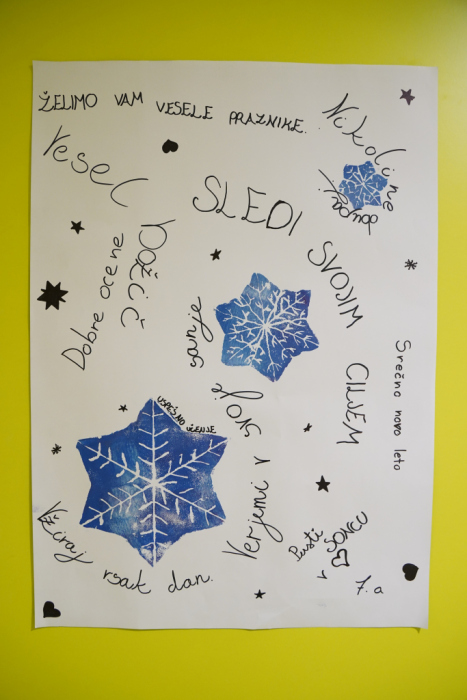 ŽELIMO VAM VESELE PRAZNIKE.
Nikoli ne
obupaj!
Vesel
Božič
SLEDI
SVOJIM
CILJEM
Dobre ocene
Verjemi v
svoje
sanje
Srečno novo leto
USPEŠNO
UČENJE
Vživaj
vsak dan.
Pusti
SONCU
v
7. a